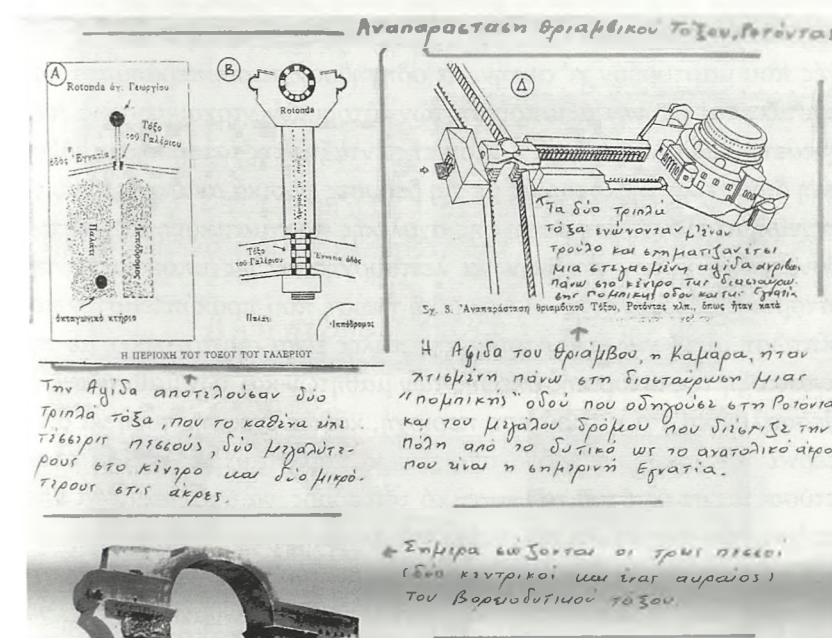 Αναπαρασταση θριαμβικού Τόξου, Ροτόντας
Α
Rotonda ἁγ. Γεωργίου
Τόξο
τοῦ Γαλέριου
ὁδός Ἐγνατία
Παλάτι
Ἱπποδρόμος
ὀκταγωνικό κτήριο
Β
Rotonda
Τόξο
τοῦ Γαλέριου
Ἐγνατία ὁδός
Παλάτι
Ἱππόδρομος
Η ΠΕΡΙΟΧΗ ΤΟΥ ΤΟΞΟΥ ΤΟΥ ΓΑΛΕΡΙΟΥ
Δ
Τα δύο τριπλά
τόξα ενώνονταν μ' έναν
τρούλο και σχηματιζαν έτσι
μια στεγασμένη αψίδα ακριβώς
πάνω στο κέντρο της διασταύρω-
σης Πομπικής οδού και της Εγνατία
Σχ. 3. Ἀναπαράσταση θριαμβικοῦ Τόξου, Ροτόντας κλπ., ὅπως ἦταν κατά
Την Αψίδα αποτελούσαν δύο
τριπλά τόξα, που το καθένα είχε
τέσσερις πεσσούς, δύο μεγαλύτε-
ρους στο κέντρο και δύο μικρό-
τερους στις άκρες.
Η Αψίδα του θριάμβου, η Καμάρα, ήταν
χτισμένη πάνω στη διασταύρωση μιας
"πομπικής" οδού που οδηγούσε στη Ροτόντα
και του μεγάλου δρόμου που διέσχιζε την
πόλη από το δυτικό ως το ανατολικό άκρο
που είναι η σημερινή Εγνατία.
Σήμερα σώζονται οι τρεις πεσσοί
(δύο κεντρικοί και ένας ακραίος)
του βορειοδυτικού τόξου.